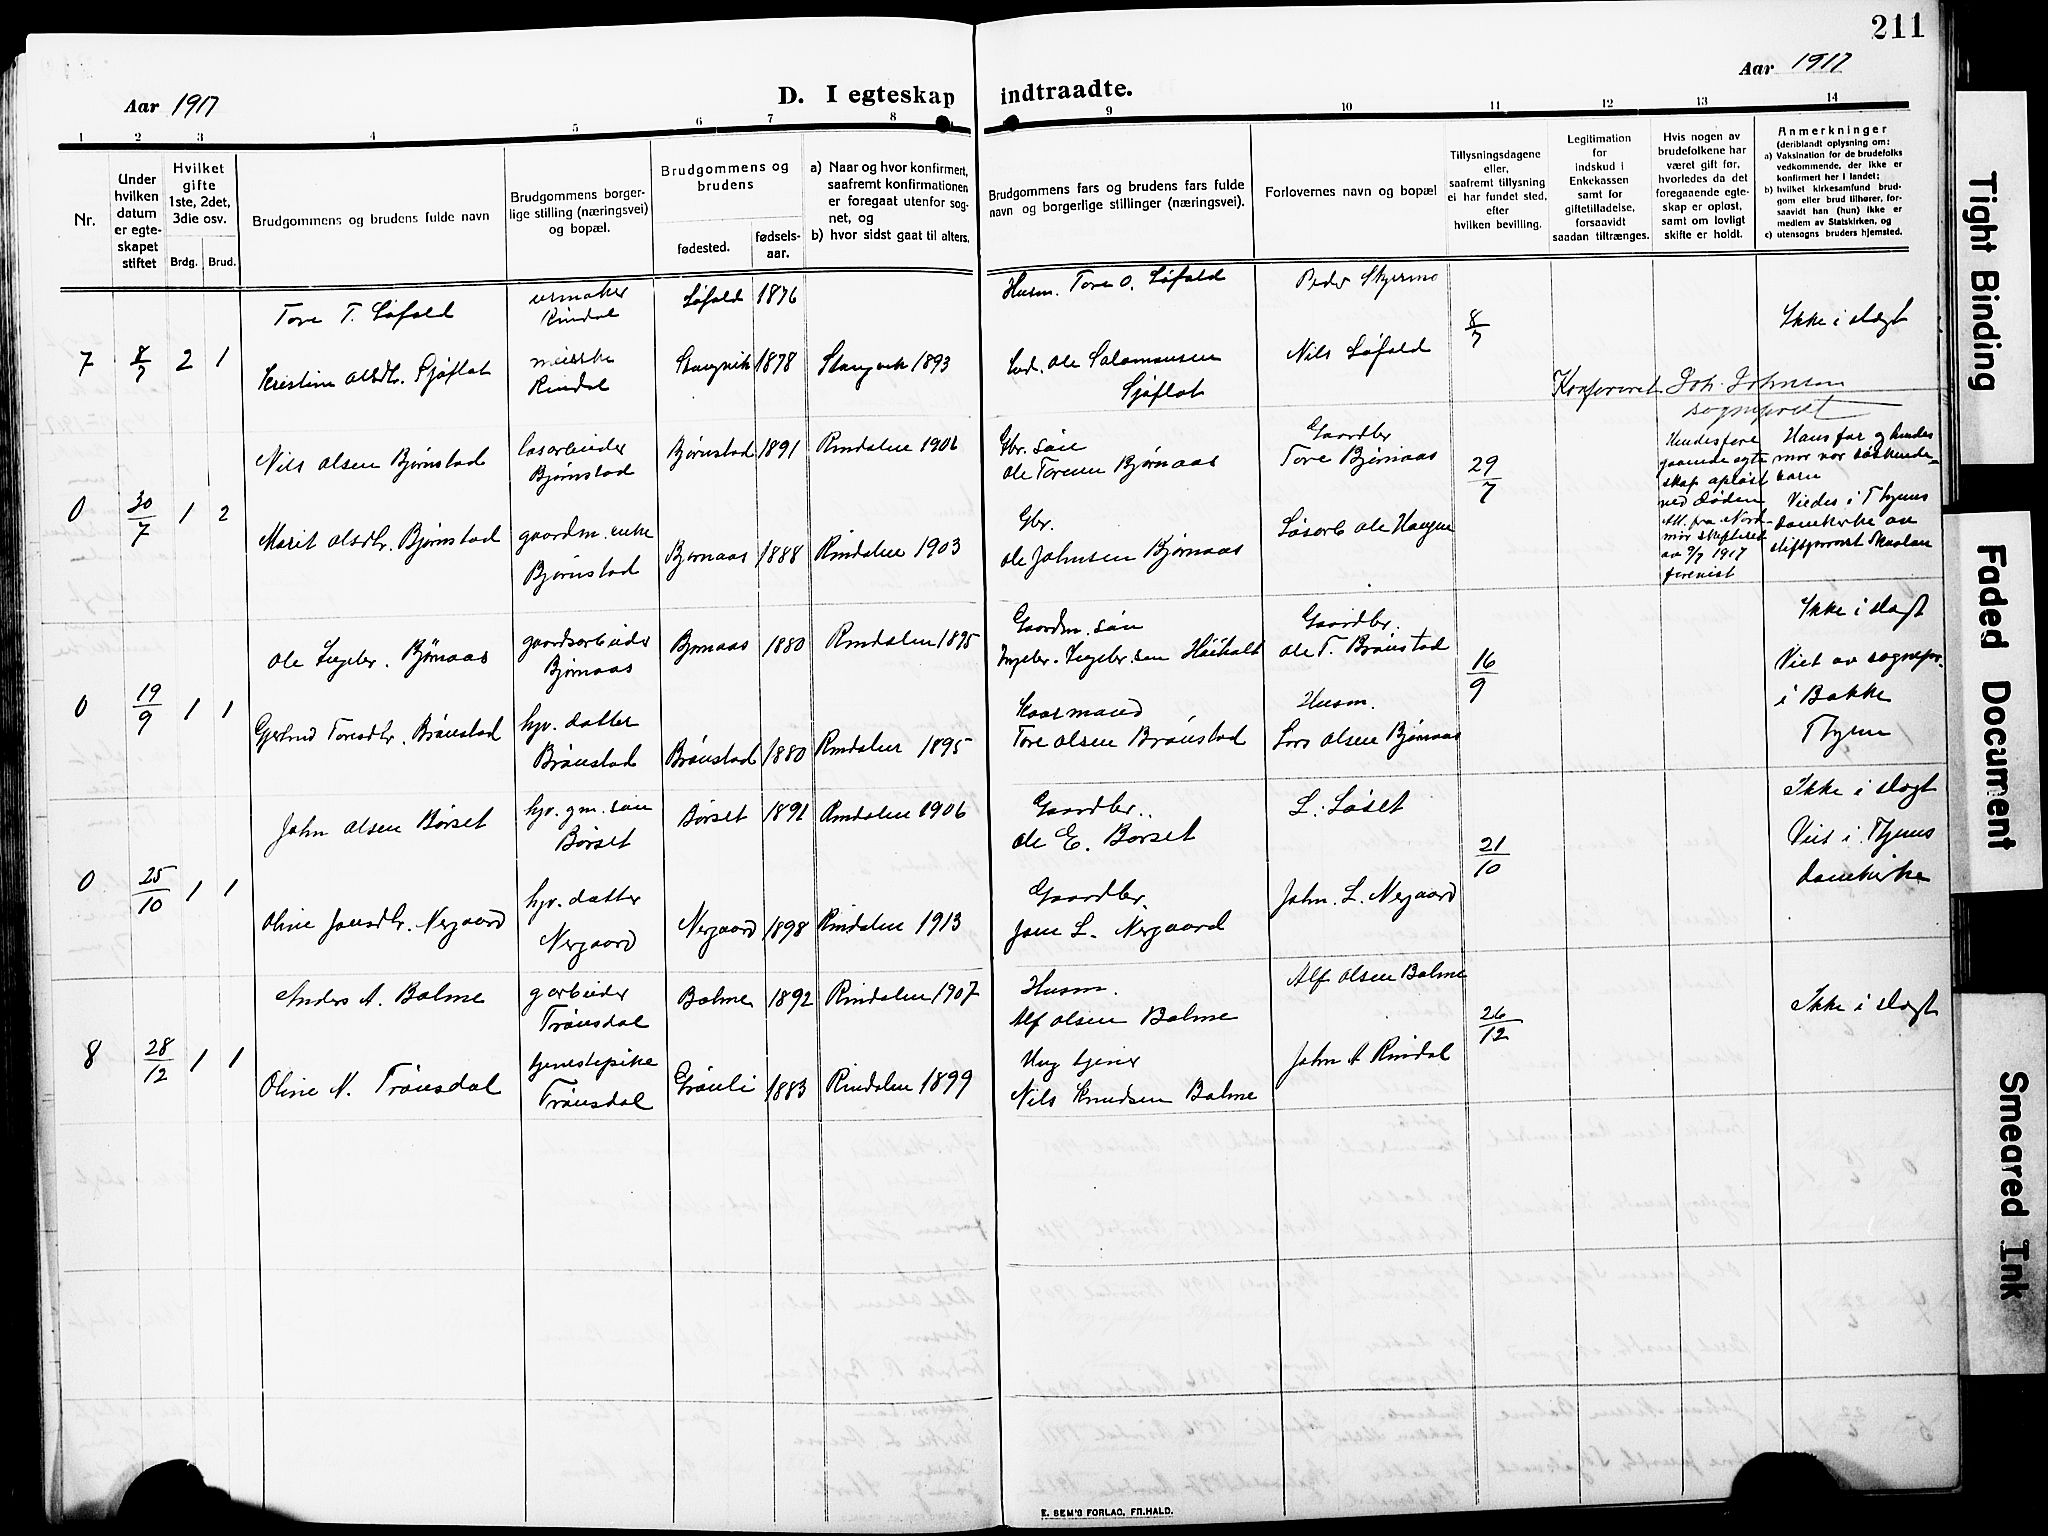 211
Aar 1917
D. I egteskap indtraadte.
Aar 1917
1 2 3 4 5 6 7 8 9 10 11 12 13 14
Nr.
Under hvilken datum er egteskapet stiftet
Hvilket gifte 1ste, 2det, 3die osv.
Brdg. Brud.
Brudgommens og brudens fulde navn
Brudgommens borgerlige stilling (næringsvei) og bopæl.
Brudgommens og brudens
fødested.
fødselsaar.
a) Naar og hvor konfirmert, saafremt konfirmationen er foregaat utenfor sognet, og
b) hvor sidst gaat til alters.
Brudgommens fars og brudens fars fulde navn og borgerlige stillinger (næringsvei).
Forlovernes navn og bopæl
Tillysningsdagene eller, saafremt tillysning ei har fundet sted, efter hvilken bevilling.
Legitimation for indskud i Enkekassen samt for giftetilladelse, forsaavidt saadan tiltrænges.
Hvis nogen av brudefolkene har været gift før, hvorledes da det foregaaende egteskap er opløst, samt om lovligt skifte er holdt.
Anmerkninger
(deriblandt oplysning om:
a) Vaksination for de brudefolks vedkommende, der ikke er konfirmert her i landet;
b) hvilket kirkesamfund brudgom eller brud tilhører, forsaavidt han (hun) ikke er medlem av Statskirken, og
c) utensogns bruders hjemsted.
Tore T. Løfald urmaker Rindal Løfald 1876 Husm. Tore O. Løfald Peder Skjermo
7 8/7 2 1 8/7 Ikke i slægt
Kristine Olsdtr. Sjøflot Rindal Stangvik 1878 Stangvik 1893 Ole Salamonsen Sjøflot Nils Løfald
Konfereret Joh. Johnson sogneprest
Nils Olsen Bjørnstad løsarbeider Bjørnstad Bjørnstad 1891 Rindalen 1906 Gbr. søn Ole Toresen Bjørnaas Gaardbr Tore Bjørnaas
0 30/7 1 2 29/7
Hendes foregaaende egteskap opløst ved døden Att. fra Nordmør skifteret av 9/7 1917 forevist
Hans far og hendes mor var søskendebarn
Viedes i Thjems domkirke av stiftsprovst
Marit Olsdtr. Bjørnstad gaardm. enke Bjørnstad Bjørnaas 1888 Rindalen 1903 Gbr. Ole Johnsen Bjørnaas Løsarb Ole Haugen
Ole Ingebr. Bjørnaas gaardsarbeider Bjørnaas Bjørnaas 1880 Rindalen 1895 Gaardm. søn Ingebr. Ingebr.sen Gaardbr. Ole T. Brønstad
0 19/9 1 1 16/9 Ikke i slægt
Viet av sognepr. i Bakke
Gjertrud Toresdtr. Brønstad hjv. datter Brønstad Brønstad 1880 Rindalen 1895 Kaarmand Tore Olsen Brønstad Husm. Lars Olsen Bjørnaas
John Olsen Børset hjv. gm. søn Børset Børset 1891 Rindalen 1906 Gaardbr. Ole E. Børset L. Løset
0 25/10 1 1 21/10 Ikke i slægt
Viet i Thjems domkirke
Oline Jonsdtr. Nergaard hjv. datter Nergaard Nergaard 1898 Rindalen 1913 Gaardbr. Jon L. Nergaard John. L. Nergaard
Anders A. Bolme g arbeider Trønsdal Bolme 1892 Rindalen 1907 Husm. Alf Olsen Bolme Alf Olsen Bolme
8 28/12 1 1 26/12 Ikke i slægt
Oline N. Trønsdal tjenestepike Trønsdal Grønli 1883 Rindalen 1899 Ung tjener Nils Knudsen Bolme John A Rindal
E. SEM'S FORLAG, FR.HALD.
Tight Binding
Faded Document
Smeared Ink